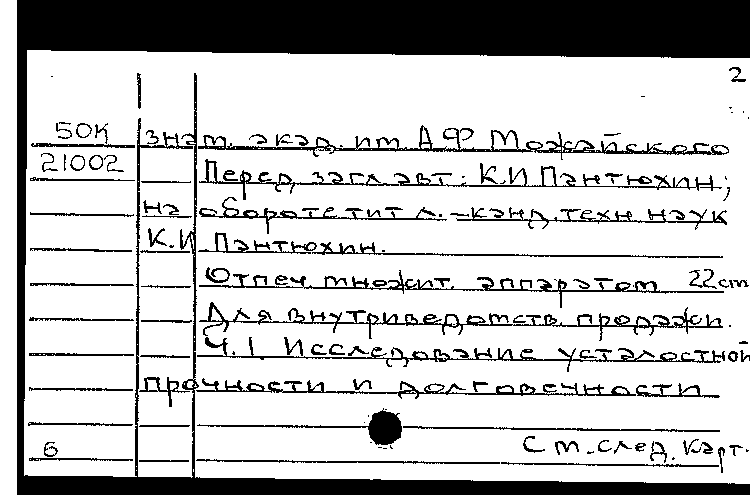 2
50К знат. акад. им А Ф Можайского
21002 Перед загл авт: К.И Пантюхин;
на обороте тит л. – канд. техн наук
К.И Пантюхин.
Отпеч. множит. аппаратом 22 cm
Для внутриведомств. продажи.
Ч.1. Исследование усталостной
прочности и долговечности
6 См. след. карт.